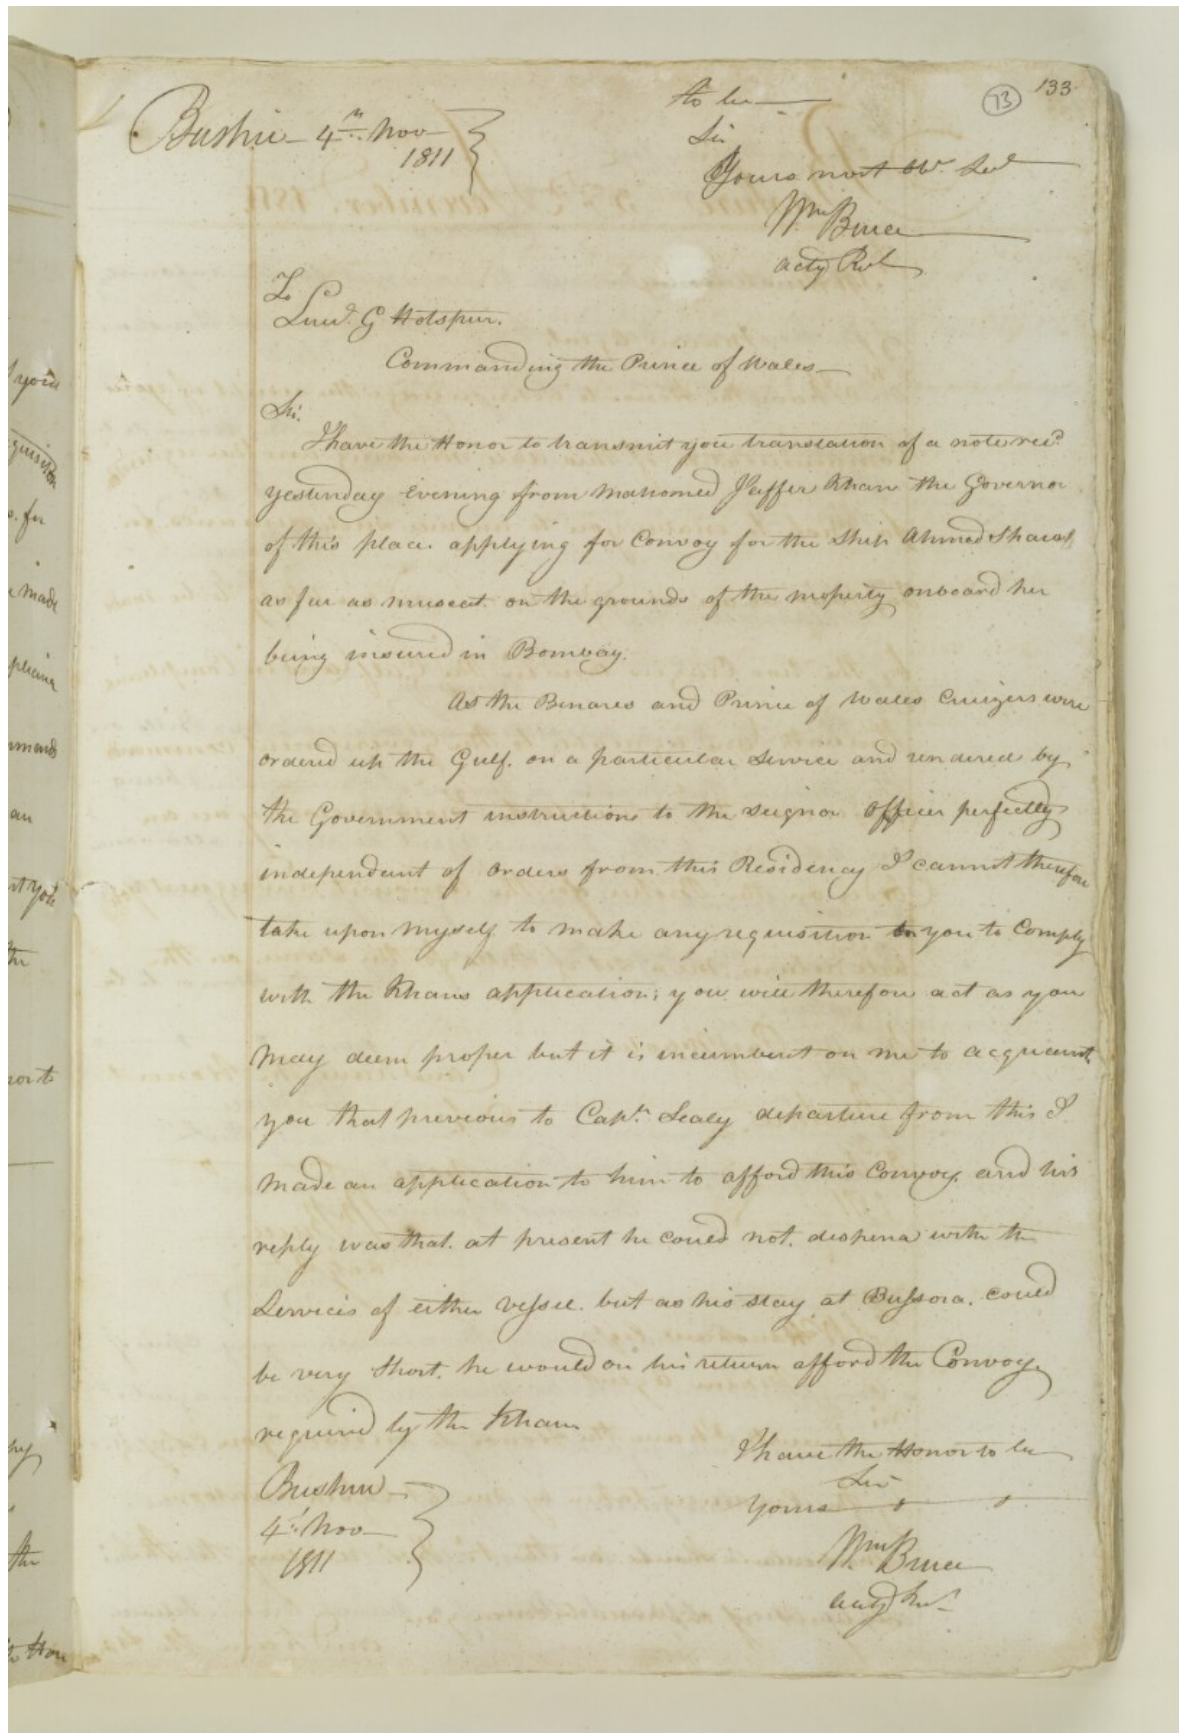 133
73
to be
Sir
Yours most Obt. Sevt
Wm Bruce
actg Rest
Bushire 4th Nov
1811
To
Lieut. G Hotspur.
Commanding the Prince of Wales
Sir.
I have the Honor to transmit you translation of a note recd
yesterday Evening from Mahomed Jaffer Khan the Governor
of this place. applying for Convoy for the Ship Ahmed Shaw
as far as muscat. on the grounds of the property onboard her
being insured in Bombay.
As the Benares and Prince of Wales Cruizers were
ordered up the Gulf. on a particular Service and rendered by
the Government instructions to the seignor officer perfectly
independent of orders from this Residency I cannot therefore
take upon myself to make any requisition to you to Comply
with the Khans application; you will therefore act as you
may deem proper but it is incumbent on me to acquaint
you that previous to Capt. Sealy departure from this I
made an application to him to afford this Convoy. and his
reply was that. at present he could not. dispence with the
Services of either vessel. but as his stay at Bussora. could
be very short. he would on his return afford the Convoy
required by the Khan
I have the Honor to be
Sir
Yours
Wm Bruce
actg Rest
Bushire
4th Nov
1811